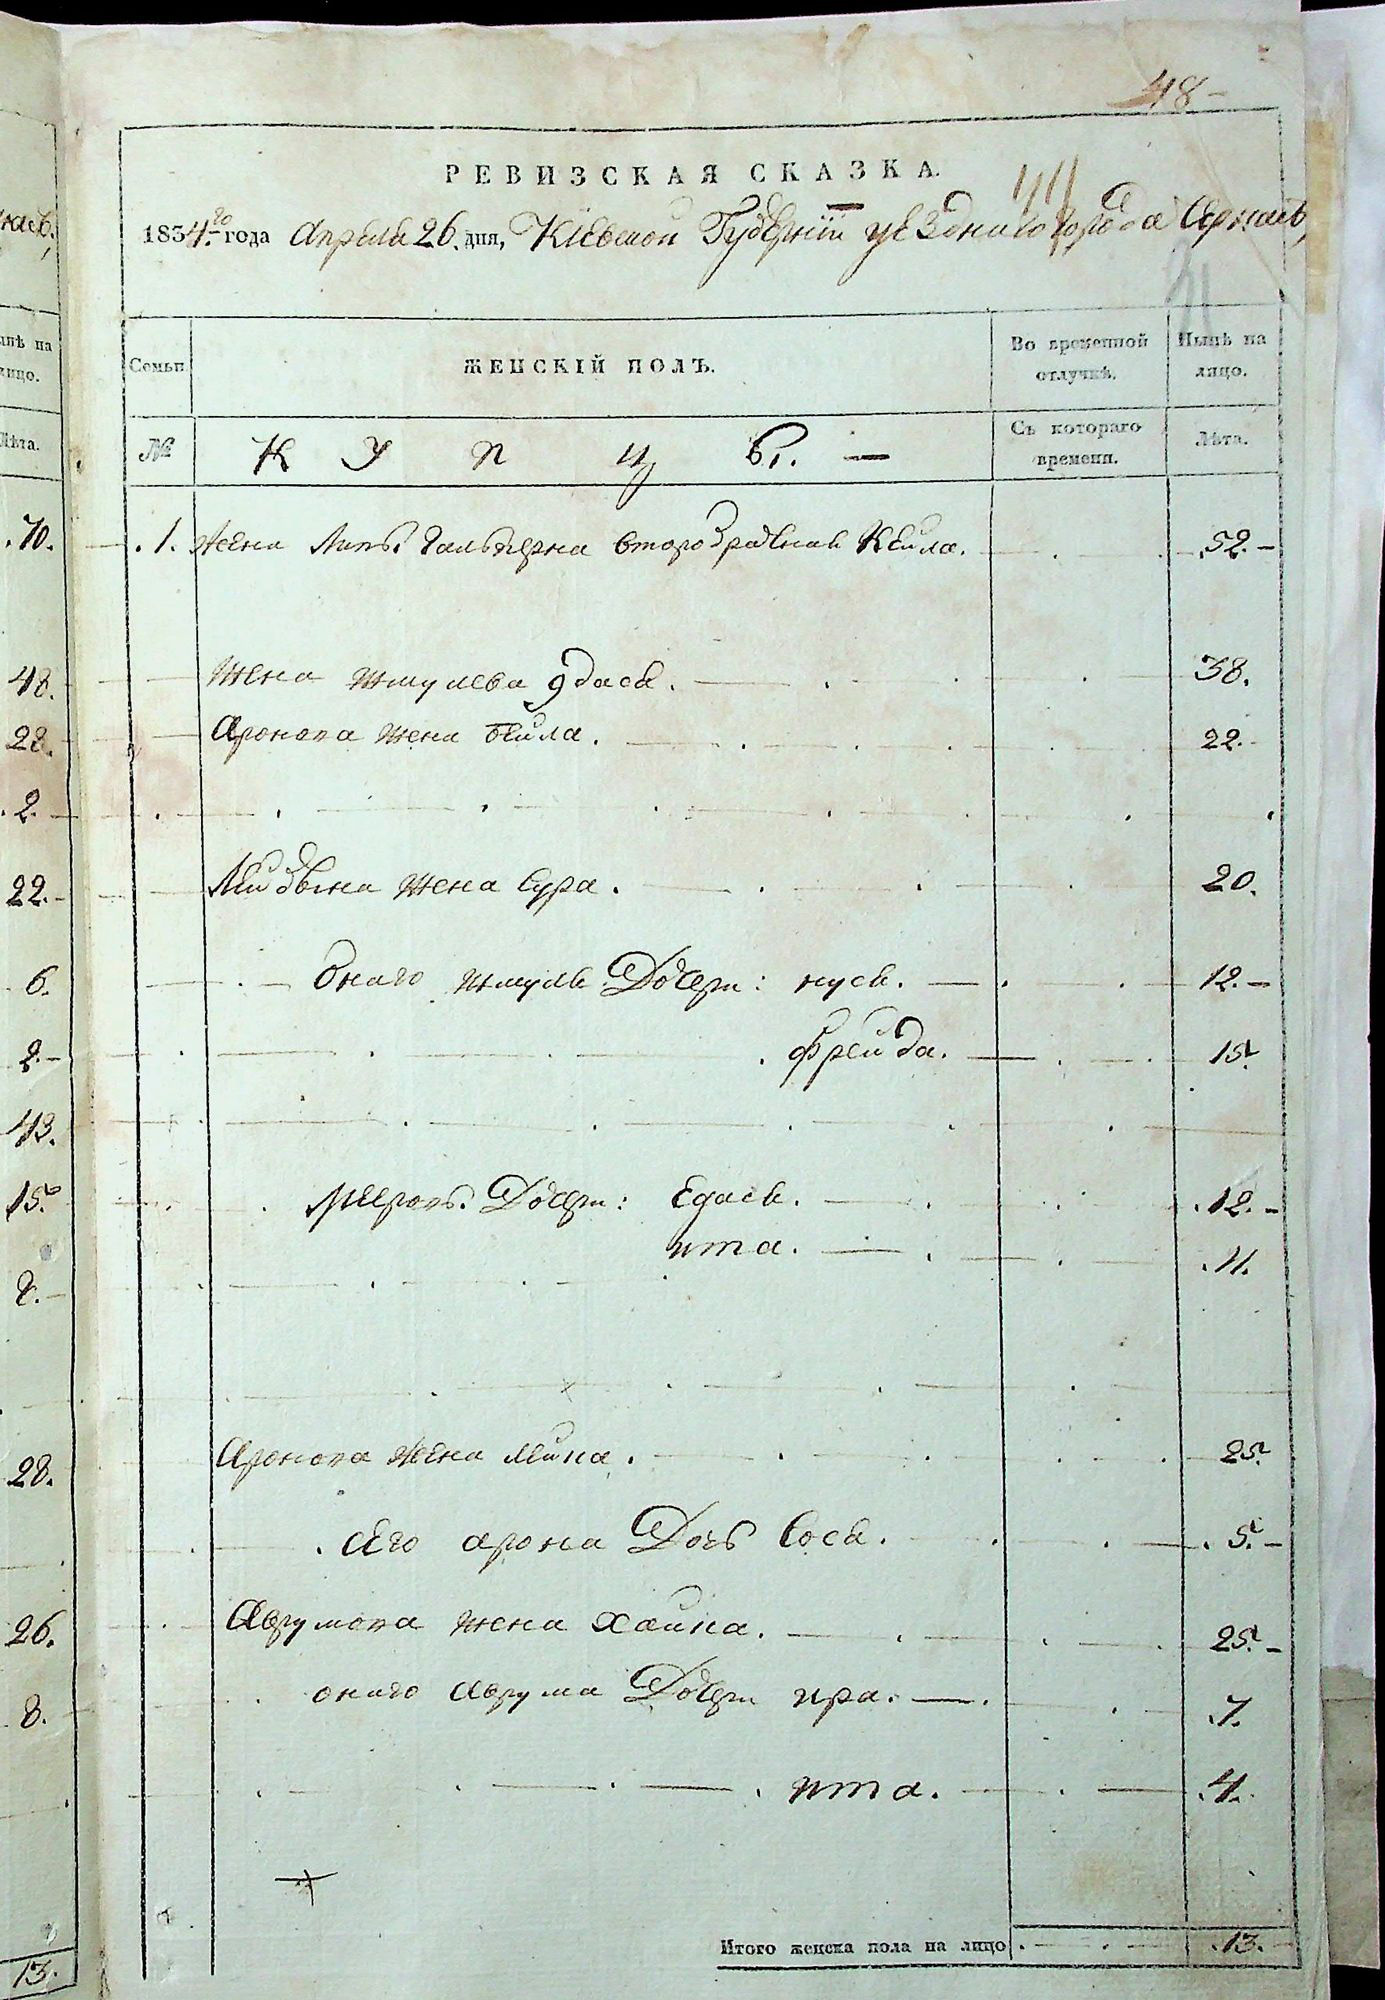 48
РЕВИЗСКАЯ СКАЗКА.
1834.го года Апреля 26. дня, Кіевской Губерніи уезднаго города
Семьи
ЖЕНСКІЙ ПОЛЪ.
Во временной отлучкѣ.
Нынѣ на лицо.
№
Купцы. —
Съ котораго времени.
Лѣта.
.1. Жена Гальперна второбрачная Кейла. 52. —
Жена Шмулева Эдася. 38.
Аронова жена Бейла. 22.
Лейбына жена Сура. 20.
Онаго Шмуля Дочери: Нуся. — 12. —
Фрейда. — 15.
Дочери: Едася. 12. —
Ита. — 4.
Аронова жена 25.
Его Арона Дочь Сося. 5. —
Аврумова жена Хайка. — 25. —
онаго Аврума Дочери Ира. — 7.
Ита. 4.
Итого женска пола на лицо 13.
ынѣ на
лицо.
Лѣта.
70.
48.
28.
2.
22.
6.
2.
43.
15.
28.
26.
8.
13.